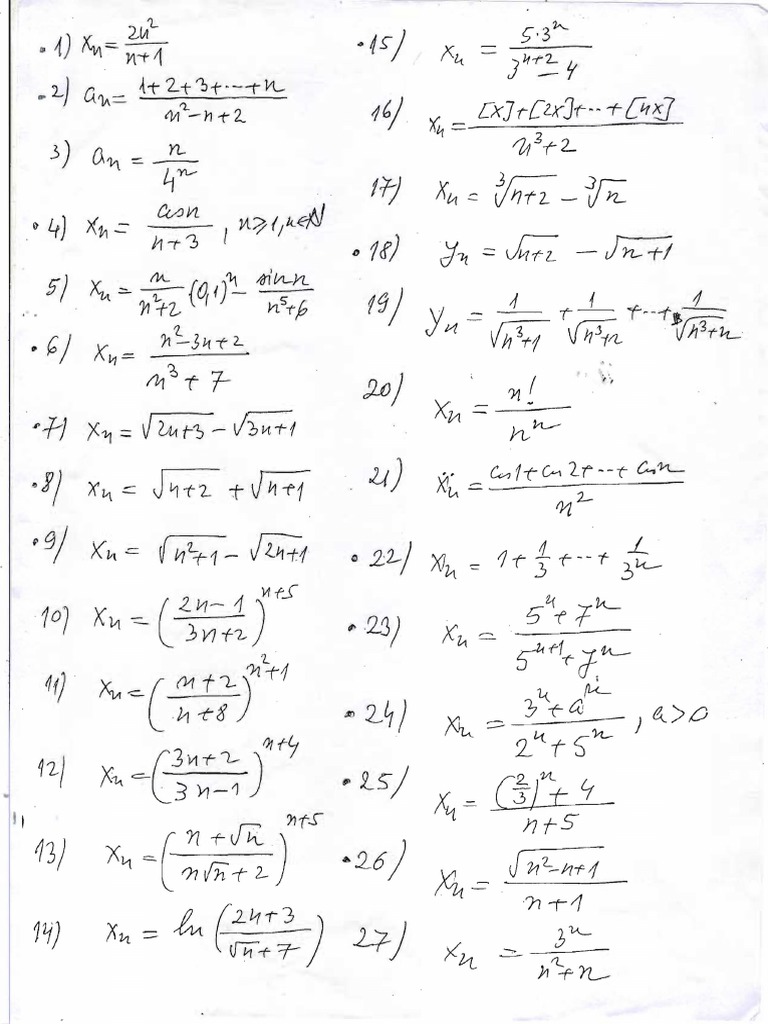 .1) xn = 2n²/(n+1)
.2) an = (1+2+3+...+n)/(n²-n+2)
3) an = n/4ⁿ
.4) xn = cos n/(n+3), n≥1, n∈N
5) xn = n/(n²+2) (0,1)ⁿ - sin n/(n⁵+6)
.6) xn = (n²-3n+2)/(n³+7)
.7) xn = √(2n+3) - √(3n+1)
.8) xn = √(n+2) + √(n+1)
.9) xn = √(n²+1) - √(2n+1)
10) xn = ((2n-1)/(3n+2))^(n+5)
11) xn = ((n+2)/(n+8))^(n²+1)
12) xn = ((3n+2)/(3n-1))^(n+4)
13) xn = ((n+√n)/(n√n+2))^(n+5)
14) xn = ln((2n+3)/(√n+7))
.15) xn = 5·3ⁿ/(3^(n+2)-4)
16) xn = ([x]+[2x]+...+[nx])/(n³+2)
17) xn = ³√(n+2) - ³√n
.18) yn = √(n+2) - √(n+1)
19) yn = 1/√(n³+1) + 1/√(n³+2) + ... + 1/√(n³+n)
20) xn = n!/nⁿ
21) xn = (cos1+cos2+...+cos n)/n²
.22) xn = 1+1/3+...+1/3ⁿ
.23) xn = (5ⁿ+7ⁿ)/(5^(n+1)+7ⁿ)
.24) xn = (3ⁿ+aⁿ)/(2ⁿ+5ⁿ), a>0
.25) xn = ((2/3)ⁿ+4)/(n+5)
.26) xn = √(n²-n+1)/(n+1)
27) xn = 3ⁿ/(n²+n)